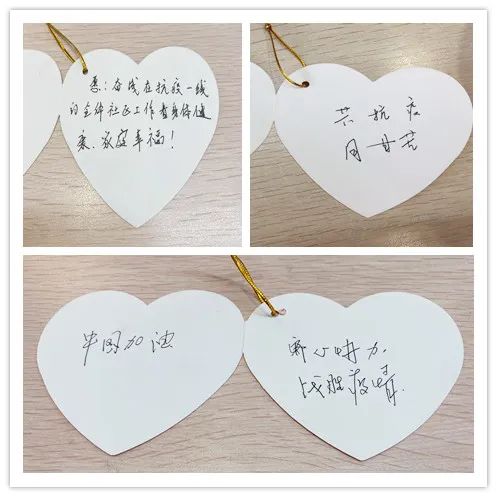 愿：奋战在抗疫一线
的全体社区工作者身体健
康、家庭幸福！
共抗疫
同甘苦
中国加油
齐心协力、
战胜疫情